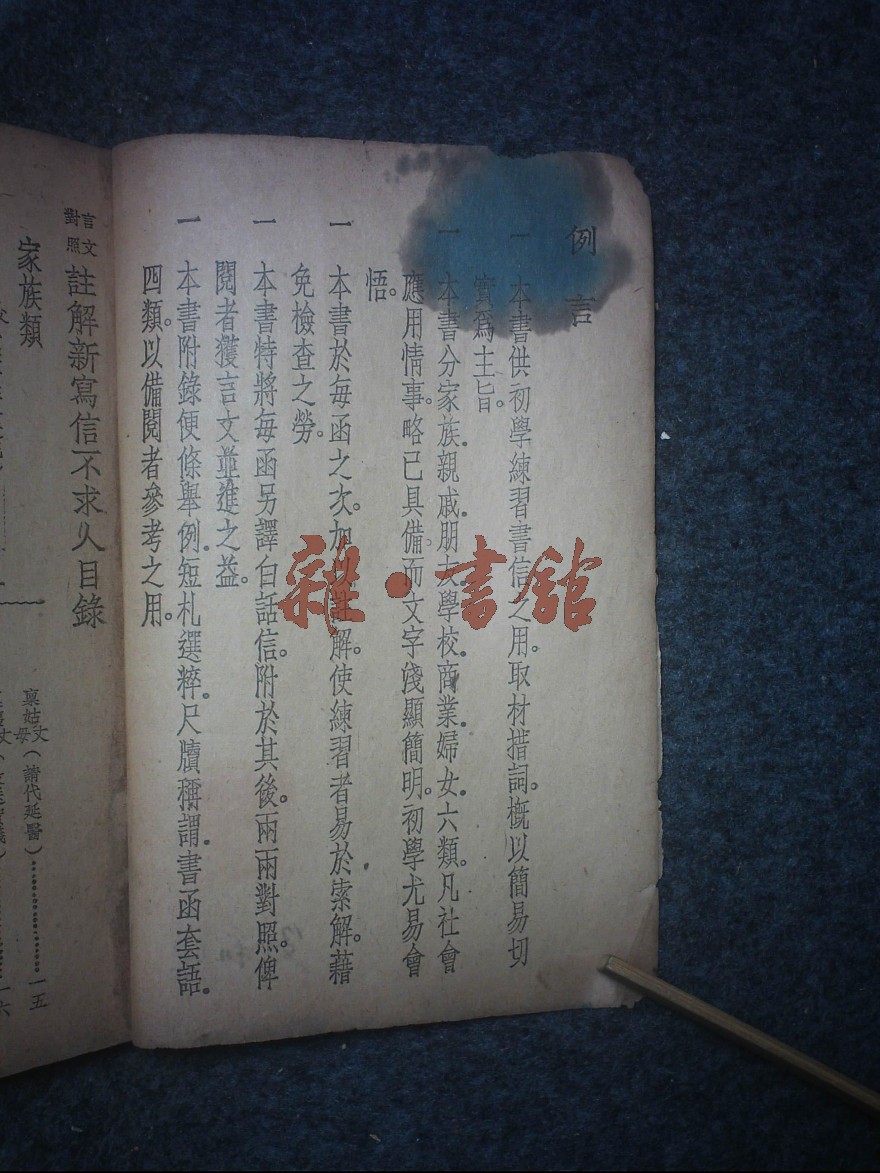 例言
一 本書供初學練習書信之用。取材措詞。概以簡易切
實爲主旨。
一 本書分家族.親戚.朋友.學校.商業.婦女.六類。凡社會
應用情事。略已具備。而文字淺顯簡明。初學尤易會
悟。
一 本書於每函之次。加以註解。使練習者易於索解。藉
免檢查之勞。
一 本書特將每函另譯白話信。附於其後。兩兩對照。俾
閱者獲言文並進之益。
一 本書附錄便條舉例.短札選粹.尺牘稱謂.書函套語.
四類。以備閱者參考之用。
言文對照 註解新寫信不求人目錄
家族類
稟姑丈母(請代延醫)………一五
雜·書館